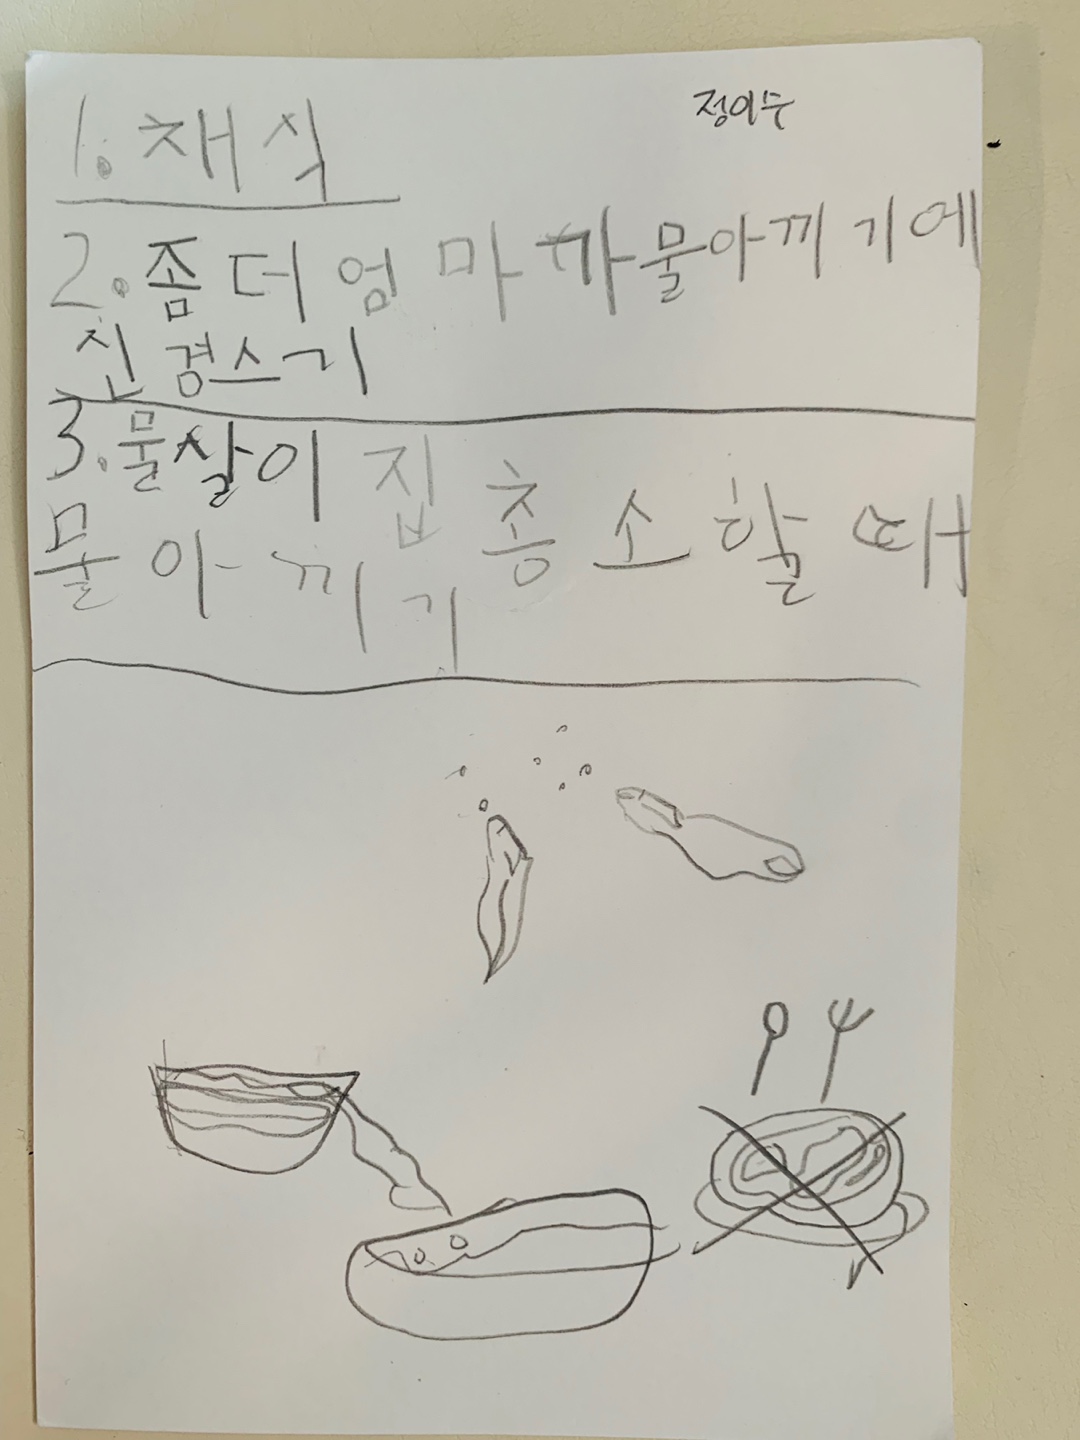 정이수
1. 채식
2. 좀 더 엄마가 물 아끼기에
진경스기
3. 물살이 집 총소할 때
물 아끼기